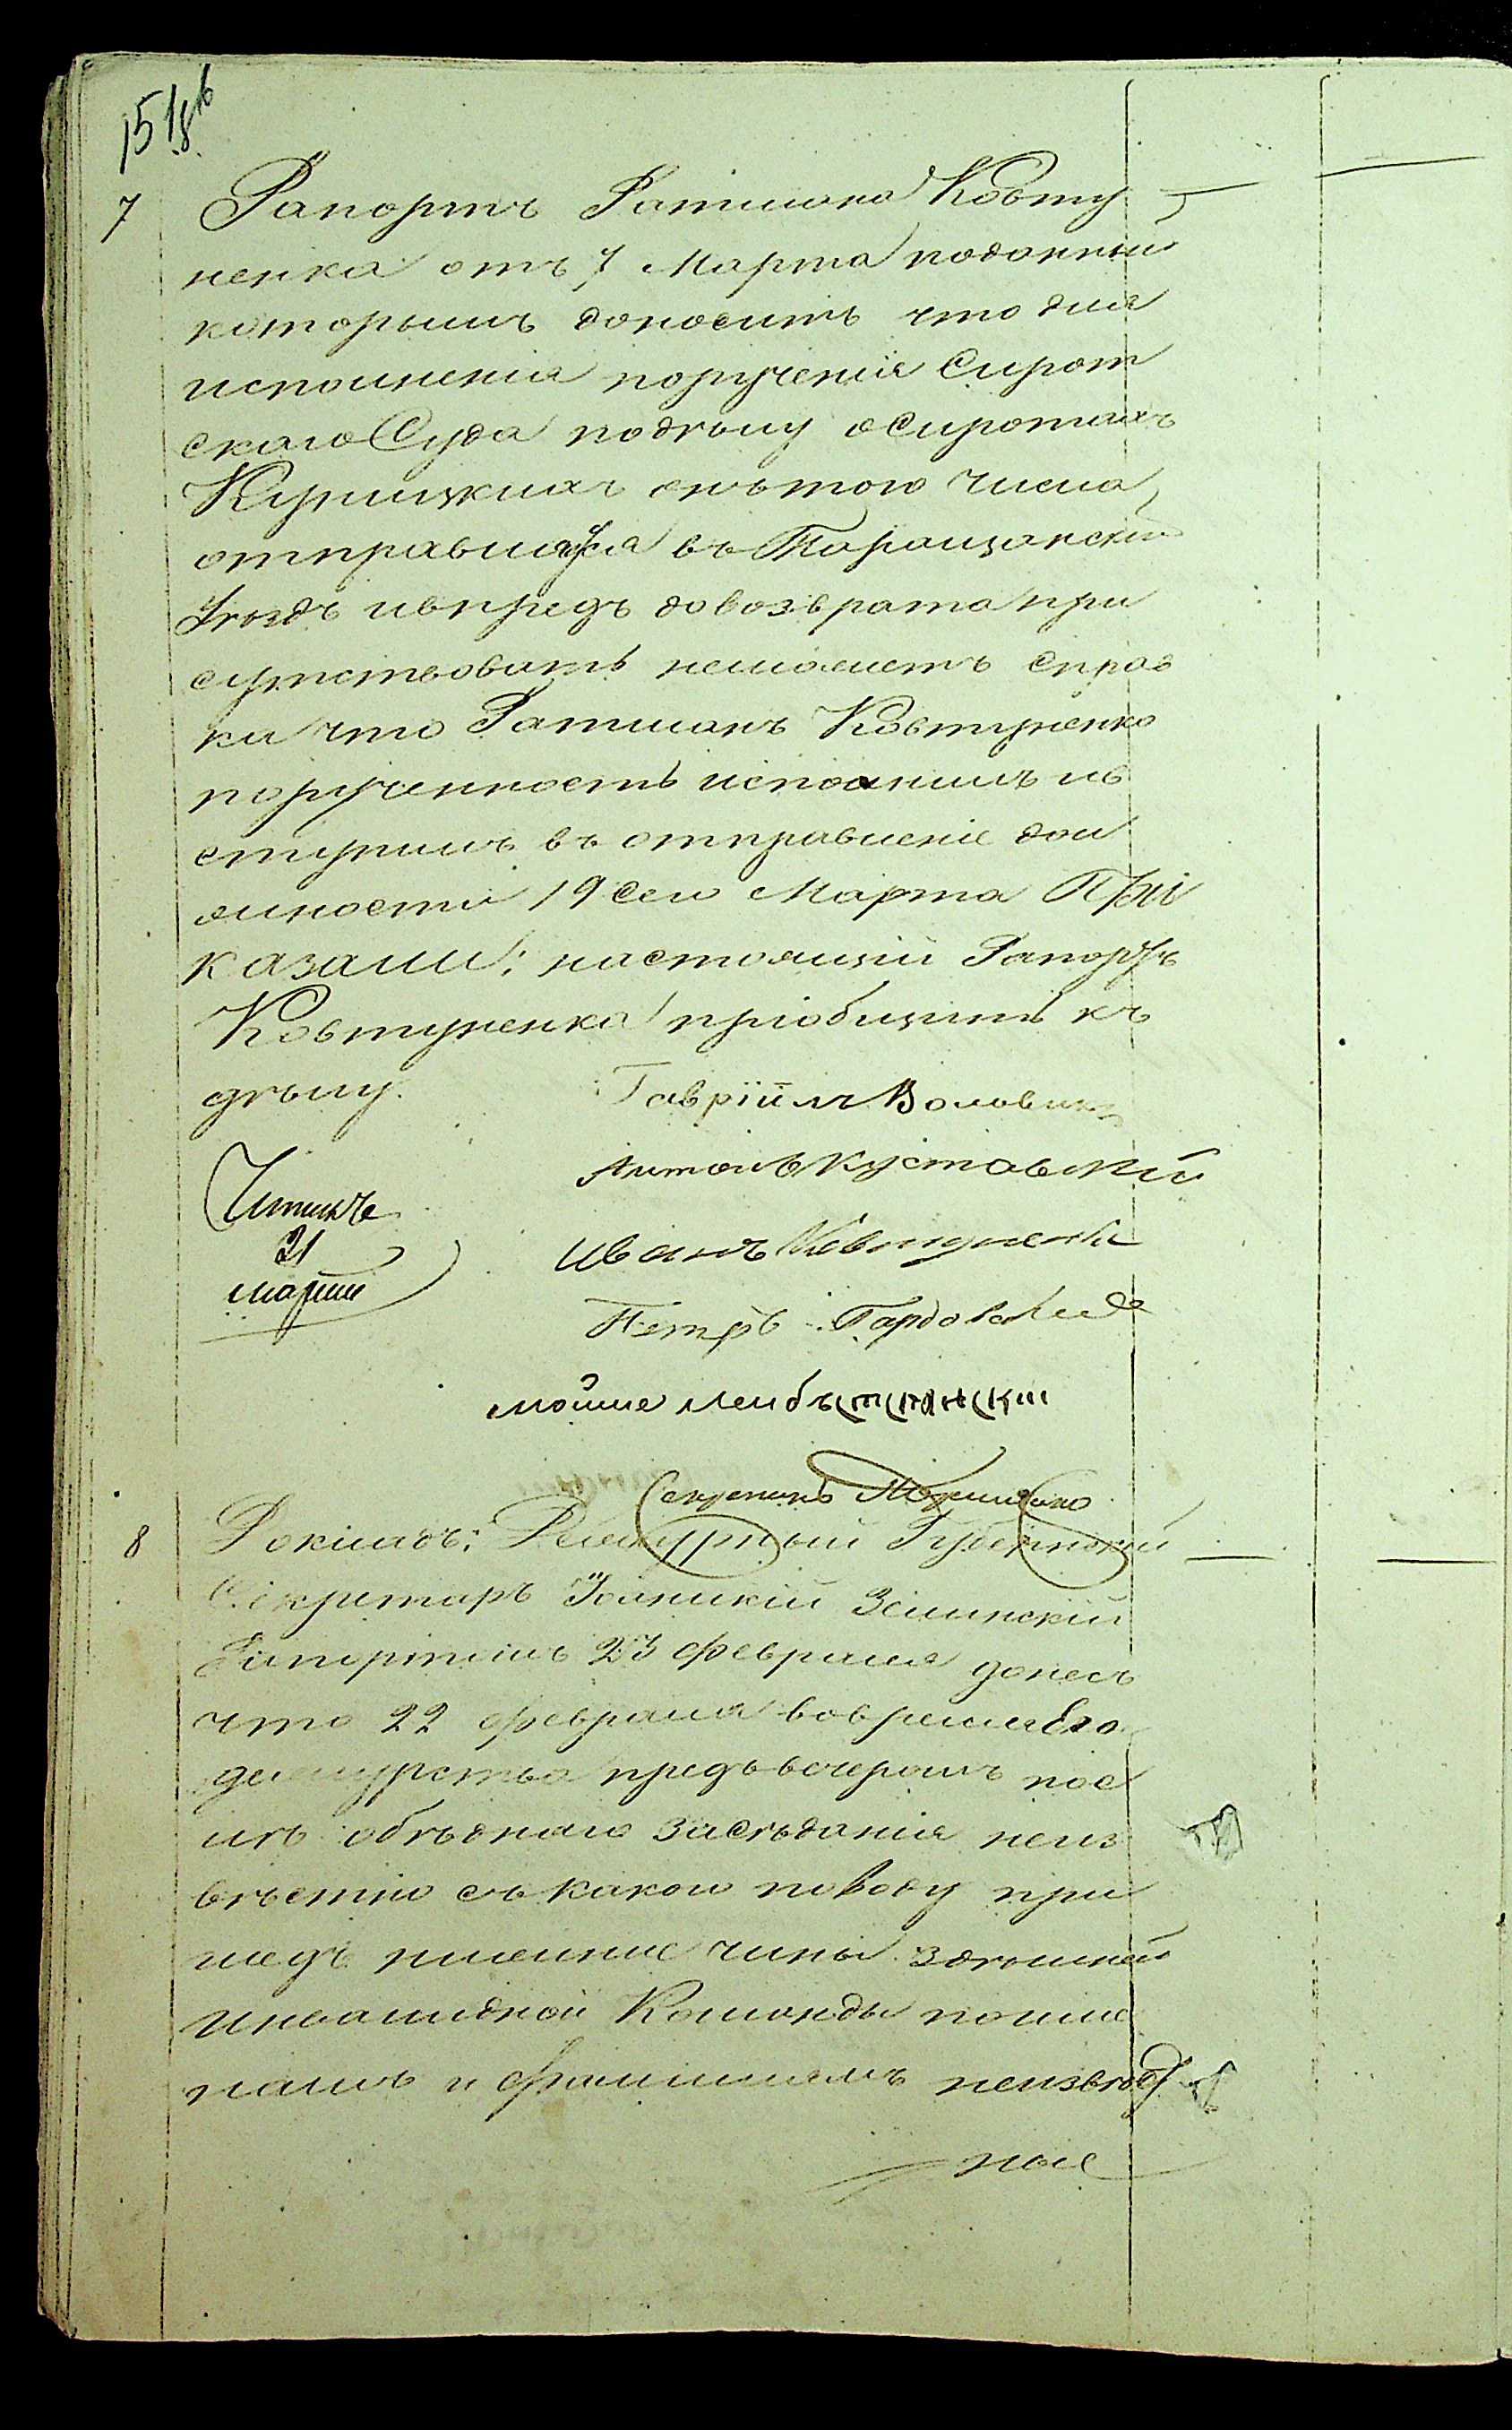 7 Рапортъ Ратмана Ковту
ненка отъ 7 Марта поданный
которымъ доноситъ что для
исполненія порученія Сирот
скаго Суда подѣлу оСиротахъ
Курицкихъ онъ того числа
отправился въ Таращанскій
Уездъ ивпредь довозврата при
сутствовать неможетъ справ
ка что Ратманъ Ковтуненко
порученность исполнилъ ив
ступилъ въ отправленіе дол
жности 19 сего Марта При
казали: настоящій Рапортъ
Ковтуненка пріобщить къ
дѣлу. Гавріилъ Воловик
Антонъ Кустовский
Читалъ
21
марта
Иванъ Ковтуненко
Петръ
мойше лейбъ
Секретарь
8 Докладъ: Дежурный Губернский
Секретарь Іоаникій Зелинскій
Рапортомъ 23 февраля донесъ
что 22 февраля вовремя Его
дежурства предъвечеромъ пос
лѣ обѣднаго засѣданія неиз
вѣстно съ какого поводу при
шедъ нижніе чины здѣшней
инвалидной Команды поиме
намъ и фамиліямъ неизвѣст
ные